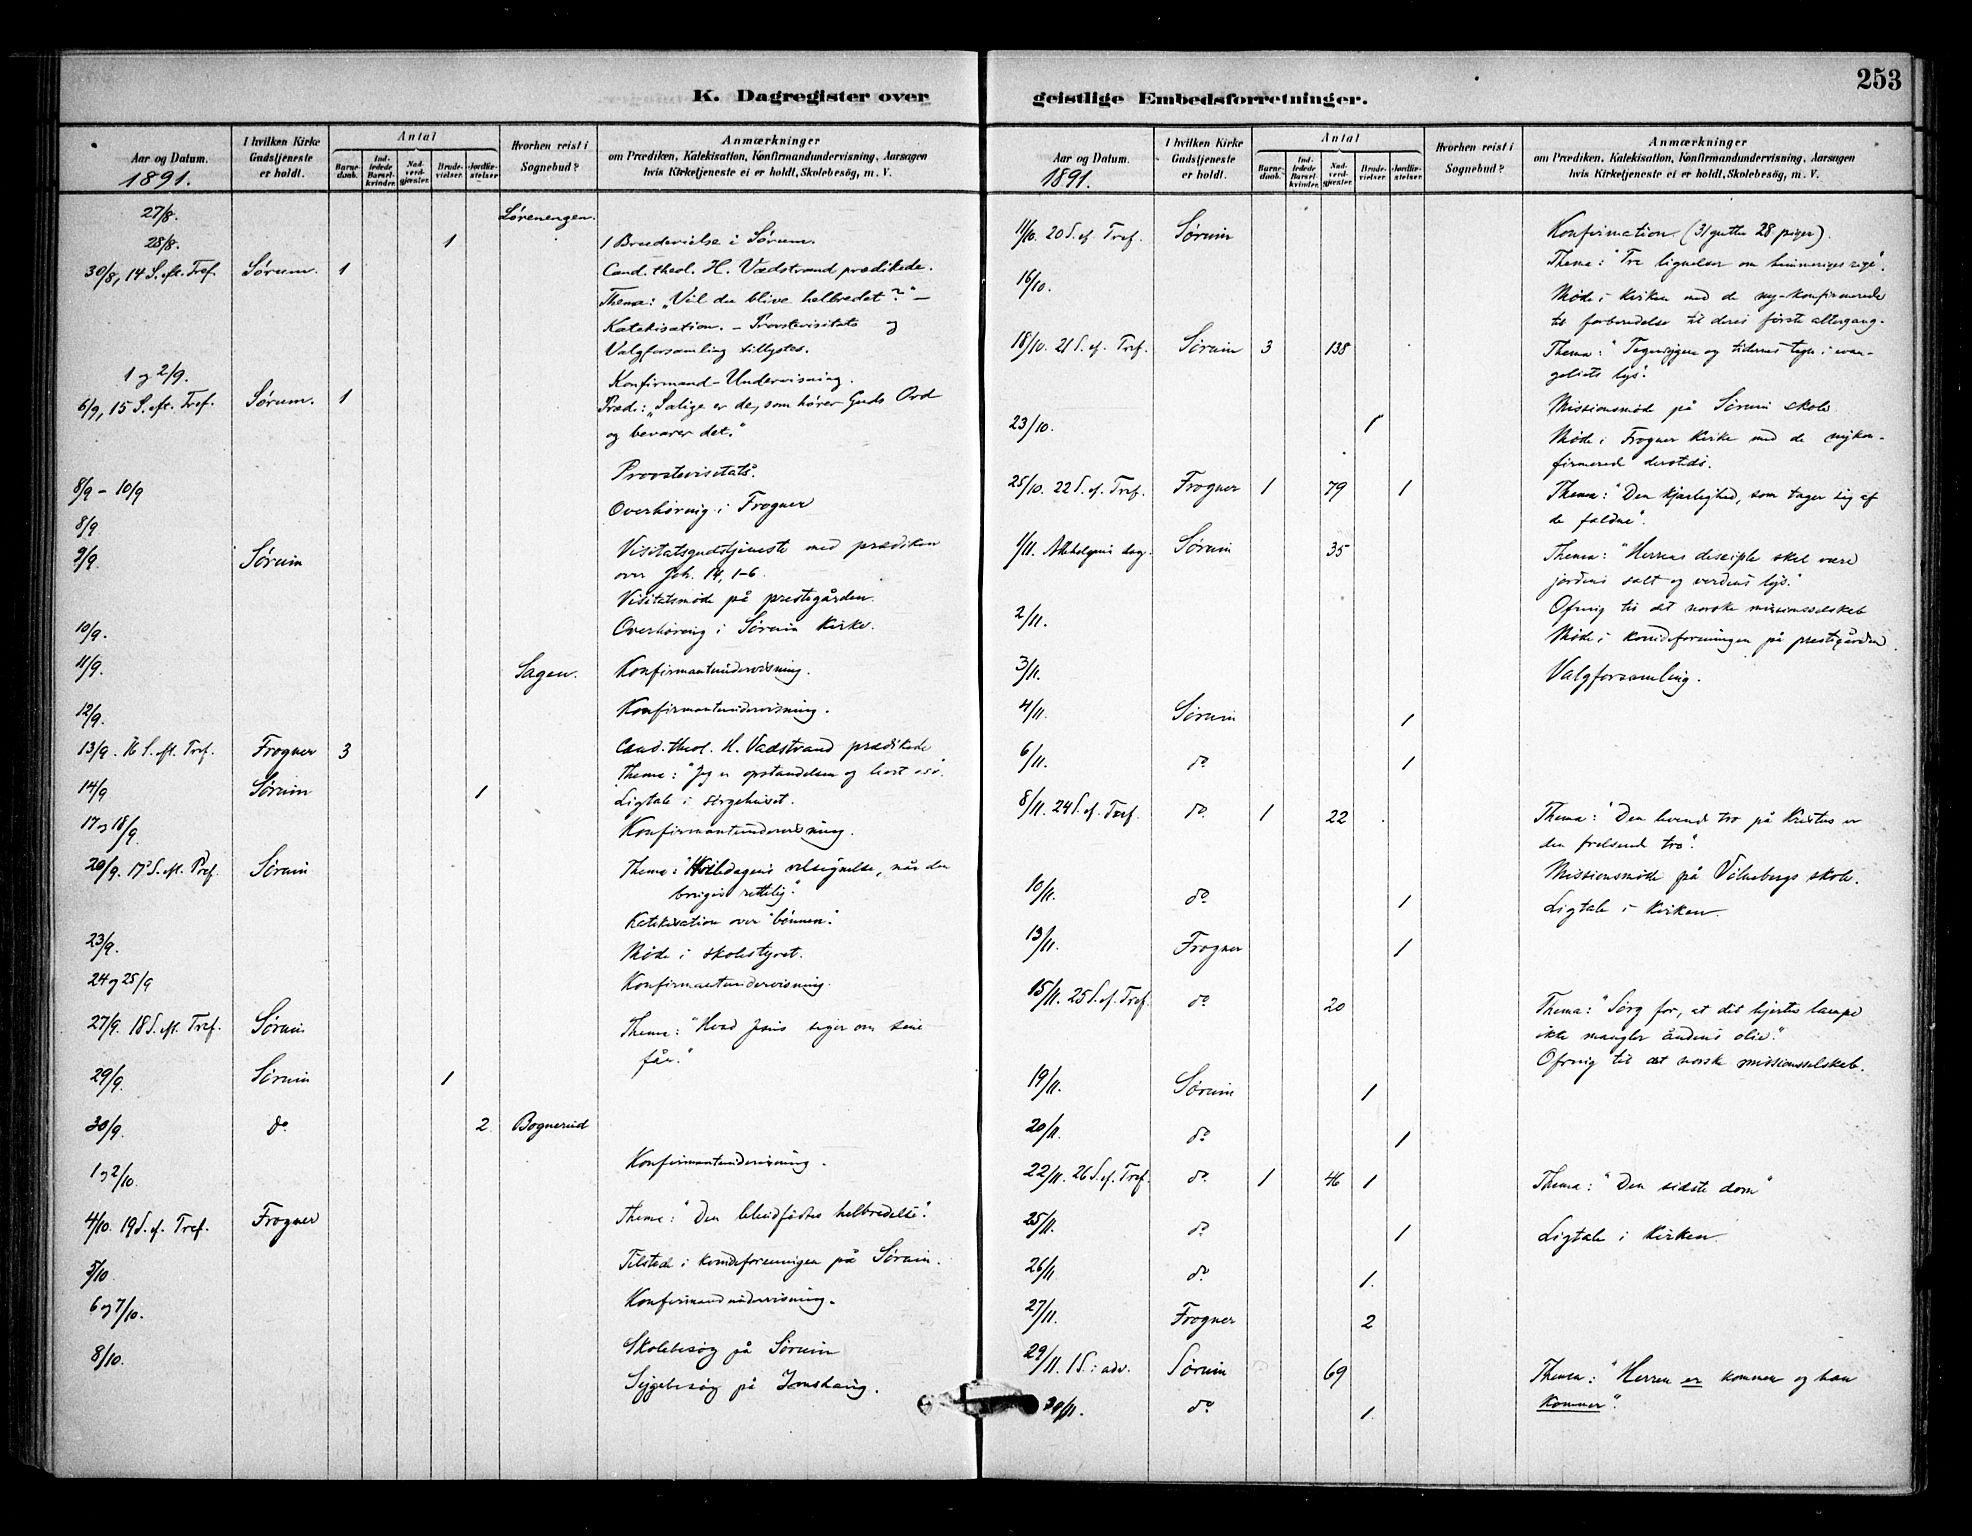 253
K. Dagregister over
Aar og Datum. 1891.
I hvilken Kirke Gudstjeneste er holdt.
Antal
Barnedaab.
Indledede Barselkvinder.
Nadverdgjæster.
Brudevielser.
Jordfæstelser.
Hvorhen reist i Sognebud?
Anmærkninger
om Prædiken, Katekisation, Konfirmandundervisning, Aarsagen
hvis Kirketjeneste ei er holdt, Skolebesøg, m. V.
27/8. Lørenengen.
28/8. 1 1 Brudevielse i Sørum.
30/8, 14 S. eft. Tref. Sørum. 1 Cand. theol. H. Vadstrand prædikede.
Thema: "Vil du blive helbredet?" –
Katekisation. – Provstevisitats og
Valgforsamling tillystes.
1 og 2/9. Konfirmand-Undervisning.
6/9, 15 S. eft. Tref. Sørum. 1 Præd: "Salige er de, som hører Guds Ord
og bevarer det."
8/9 – 10/9 Provstevisitats.
8/9 Overhøring i Frogner
9/9. Sørum Visitatsgudstjeneste med prædiken
over Joh. 14, 1-6.
Visitatsmøde på prestegården.
10/9. Overhøring i Sørum Kirke.
11/9. Sagen. Konfirmantundervisning.
12/9. Konfirmantundervisning.
13/9. 16 S. eft. Tref. Frogner 3 Cand. theol. H. Vadstrand prædikede
Thema: "Jeg er opstandelsen og livet
14/9 Sørum 1 Ligtale i sørgehuset.
17 og 18/9. Konfirmantundervisning.
20/9. 17 S. eft. Tref. Sørum Thema: "Hviledagens velsignelse, når den
bruges rettelig".
Katekisation over "bønnen".
23/9. Møde i skolestyret.
24 og 25/9 Konfirmantundervisning.
27/9. 18 S. eft. Tref. Sørum Thema: "Hvad Jesus siger om sine
får."
29/9. Sørum 1
30/9. do 2 Bognerud
1 og 2/10. Konfirmantundervisning.
4/10. 19 S. ef. Tref. Frogner Thema: "Den blindfødtes helbredelse".
5/10. Tilstede i kvindeforeningen på Sørum.
6 og 7/10. Konfirmandundervisning.
8/10. Skolebesøg på Sørum
Sygebesøg på
geistlige Embedsforretninger.
Aar og Datum. 1891.
I hvilken Kirke Gudstjeneste er holdt.
Antal
Barnedaab.
Indledede Barselkvinder.
Nadverdgjæster.
Brudevielser.
Jordfæstelser.
Hvorhen reist i Sognebud?
Anmærkninger
om Prædiken, Katekisation, Konfirmandundervisning, Aarsagen
hvis Kirketjeneste ei er holdt, Skolebesøg, m. V.
11/10. 20 S. ef. Tref. Sørum Konfirmation (31 gutter 28 piger).
Thema: "Tre lignelser om himmeriges rige".
16/10. Møde i kirken med de ny-konfirmerede
til forberedelse til deres første altergang.
18/10. 21 S. ef. Tref. Sørum 3 138 Thema: " og tidernes tegn i evan-
geliets lys".
Missionsmøde på Sørum skole
23/10. 1 Møde i Frogner Kirke med de nykon-
firmerede dersteds.
25/10. 22 S. ef. Tref. Frogner 1 79 1 Thema: "Den kjærlighed, som tager sig af
de faldne".
1/11. Allehelgens dag. Sørum 35 Thema: "Herrens disciple skal være
jordens salt og verdens lys".
Ofring til det norske missionsselskab
2/11. Møde i kvindeforeningen på prestegården.
3/11. Valgforsamling.
4/11. Sørum 1
6/11. do 1
8/11. 24 S. ef. Tref. do 1 22 Thema: "Den levende tro på Kristus er
den frelsende tro".
Missionsmøde på Vilbergs skole.
10/11. do 1 Ligtale i kirken.
13/11. Frogner 1
15/11. 25 S. ef. Tref. do 20 Thema: "Sørg for, at dit hjertes lampe
ikke mangler åndens olie."
Ofring til det norske missionsselskab.
19/11. Sørum 1
20/11. do 1
22/11. 26 S. ef. Tref. do 1 46 1 Thema: "Den sidste dom"
25/11. do 1 Ligtale i kirken.
26/11. do 1.
27/11. Frogner 2
29/11. 1 S. i adv. Sørum 69 Thema: "Herren er kommen og han
kommer".
30/11. do 1.